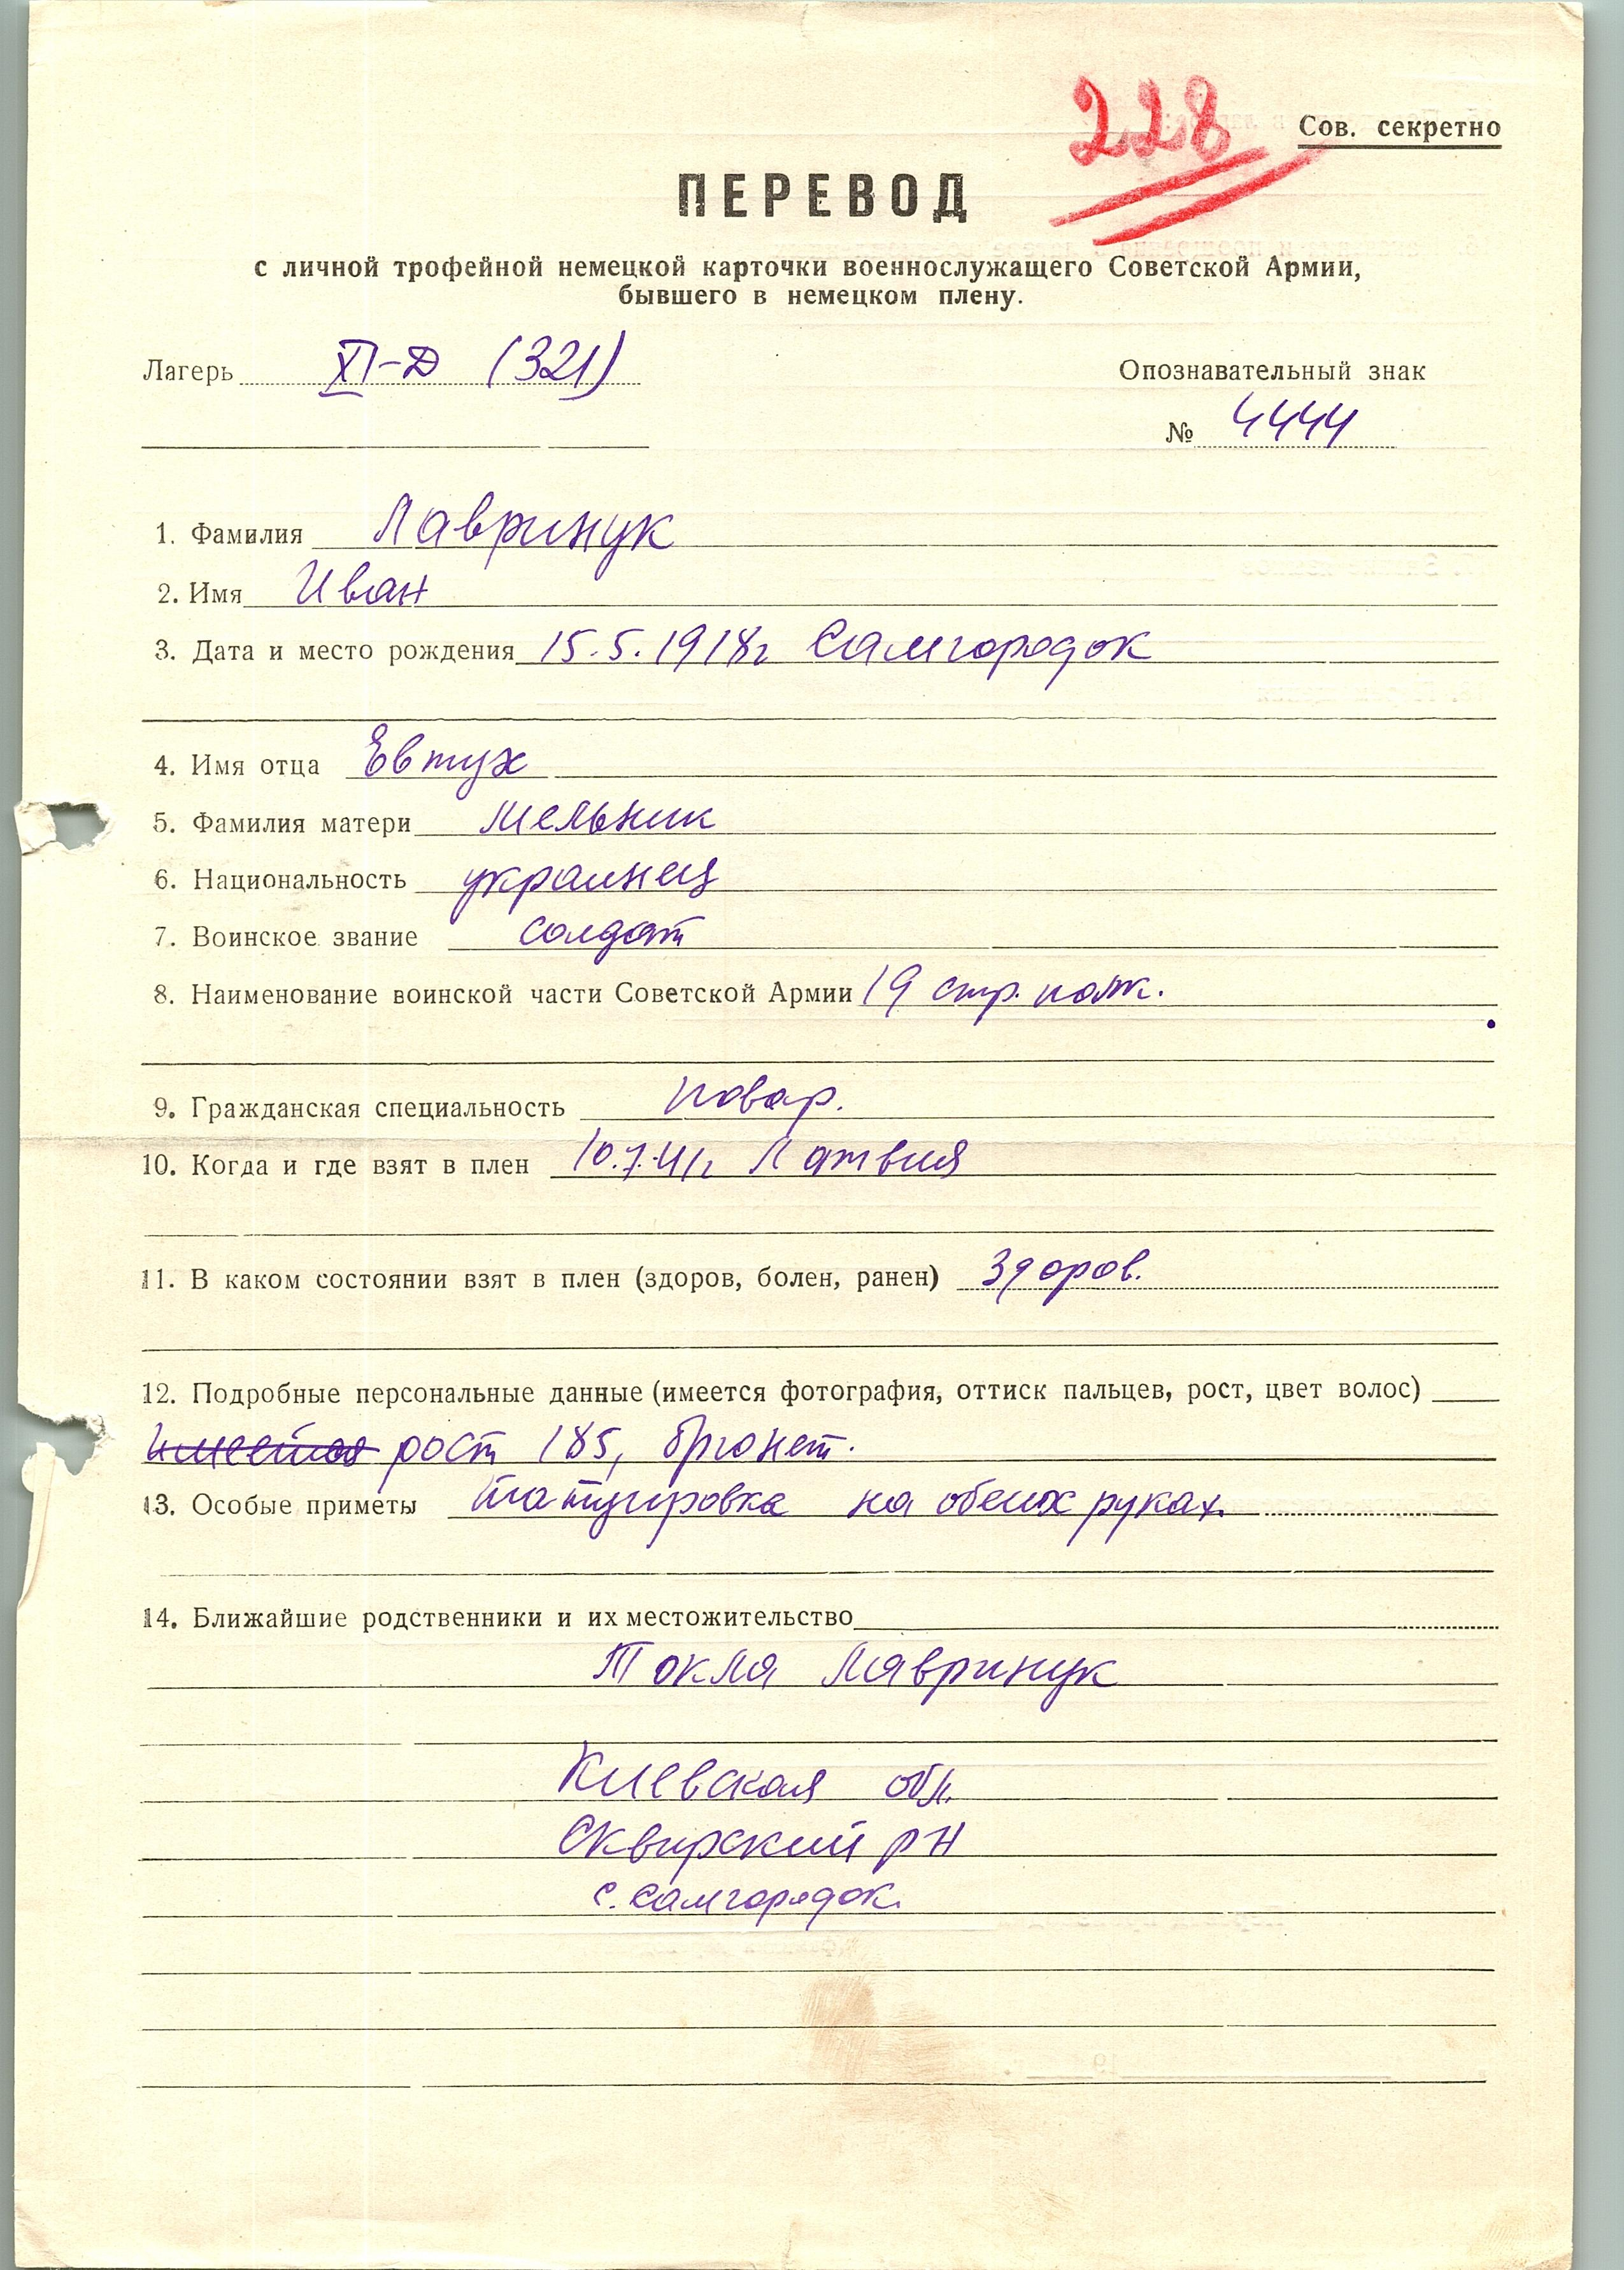 228
Сов. секретно
ПЕРЕВОД
с личной трофейной немецкой карточки военнослужащего Советской Армии,
бывшего в немецком плену.
Лагерь XI-D (321)
Опознавательный знак
№ 4444
1. Фамилия Лавринук
2. Имя Иван
3. Дата и место рождения 15.5.1918г Самгородок
4. Имя отца Евтух
5. Фамилия матери Мельник
6. Национальность украинец
7. Воинское звание солдат
8. Наименование воинской части Советской Армии 19 стр. полк.
9. Гражданская специальность повар.
10. Когда и где взят в плен 10.7.41г Латвия
11. В каком состоянии взят в плен (здоров, болен, ранен) Здоров.
12. Подробные персональные данные (имеется фотография, оттиск пальцев, рост, цвет волос)
рост 185, брюнет.
13. Особые приметы татуировка на обеих руках.
14. Ближайшие родственники и их местожительство
Токля Лавринук
Киевская обл.
Сквирский рн
с. Самгородок.